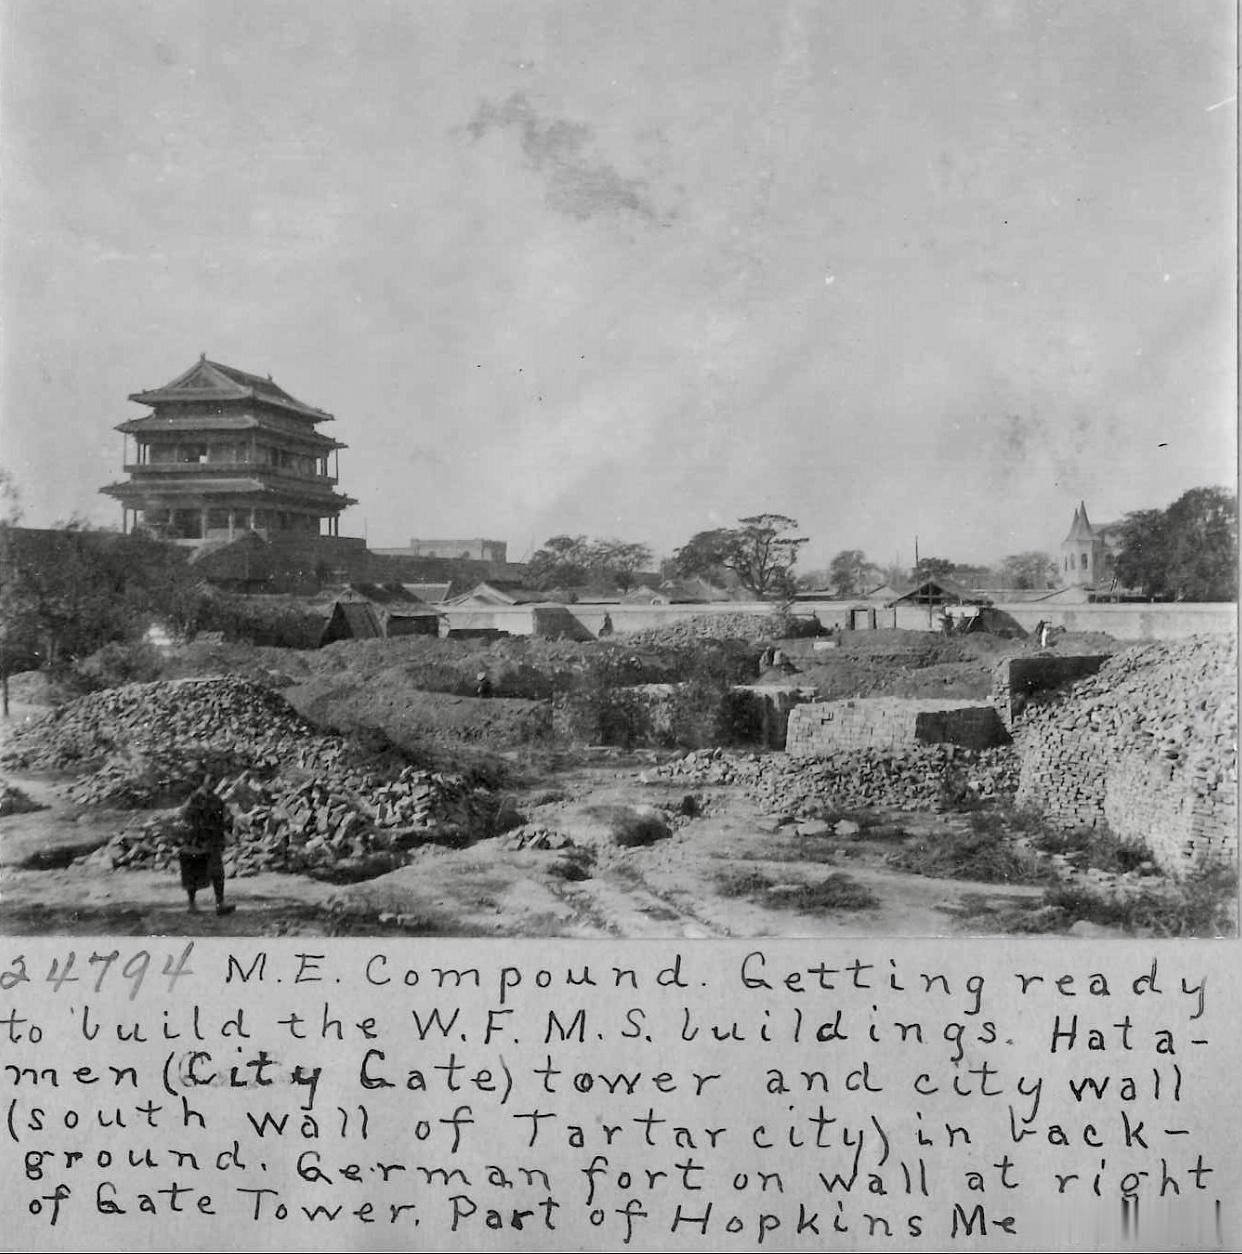 24794 M.E. Compound. Getting ready
to build the W.F.M.S. buildings. Hata-
men (City Gate) tower and city wall
(south wall of Tartar city) in back-
ground. German fort on wall at right
of Gate Tower. Part of Hopkins Me